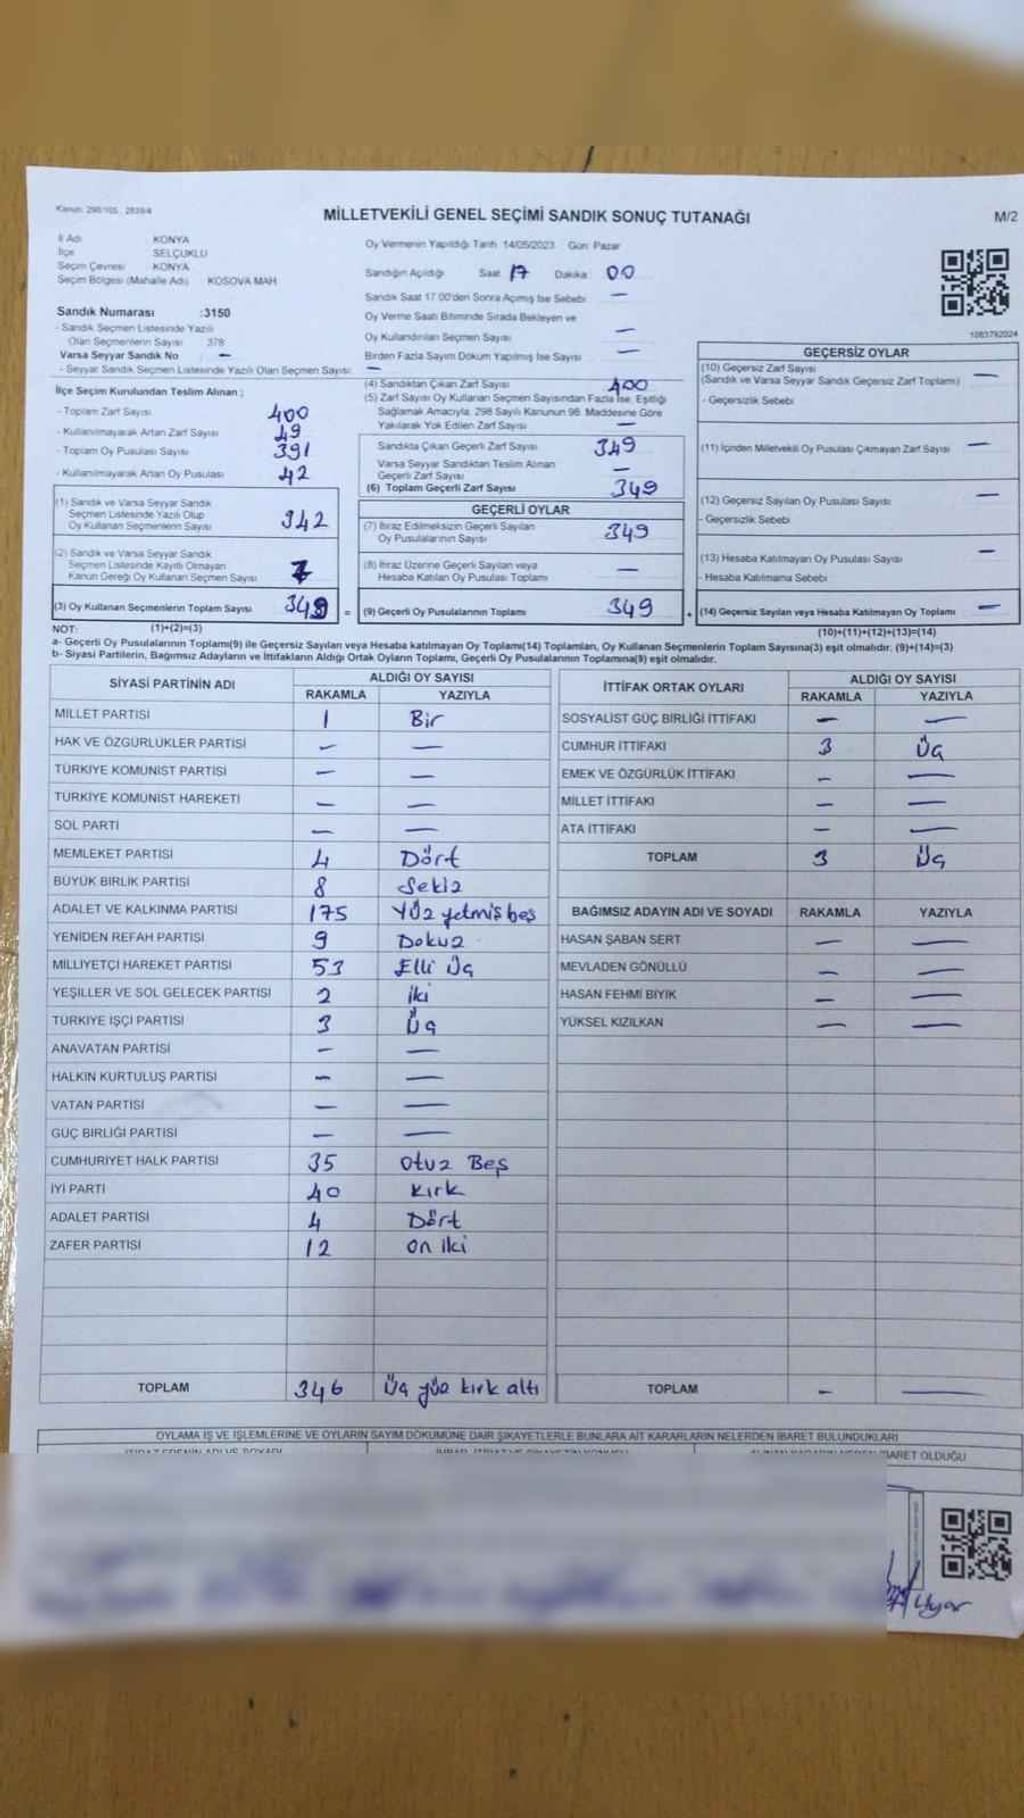 MİLLETVEKİLİ GENEL SEÇİMİ SANDIK SONUÇ TUTANAĞI
M/2
İl Adı KONYA
İlçe SELÇUKLU
Seçim Çevresi KONYA
Seçim Bölgesi (Mahalle Adı) KOSOVA MAH
Sandık Numarası :3150
- Sandık Seçmen Listesinde Yazılı
Olan Seçmenlerin Sayısı 378
Varsa Seyyar Sandık No —
- Seyyar Sandık Seçmen Listesinde Yazılı Olan Seçmen Sayısı: —
Oy Vermenin Yapıldığı Tarih 14/05/2023 Gün: Pazar
Sandığın Açıldığı Saat 17 Dakika 00
Sandık Saat 17.00'den Sonra Açılmış İse Sebebi —
Oy Verme Saati Bitiminde Sırada Bekleyen ve
Oy Kullandırılan Seçmen Sayısı —
Birden Fazla Sayım Döküm Yapılmış İse Sayısı —
1083792024
İlçe Seçim Kurulundan Teslim Alınan ;
- Toplam Zarf Sayısı 400
- Kullanılmayarak Artan Zarf Sayısı 49
- Toplam Oy Pusulası Sayısı 391
- Kullanılmayarak Artan Oy Pusulası 42
(1) Sandık ve Varsa Seyyar Sandık
Seçmen Listesinde Yazılı Olup
Oy Kullanan Seçmenlerin Sayısı 342
(2) Sandık ve Varsa Seyyar Sandık
Seçmen Listesinde Kayıtlı Olmayan
Kanun Gereği Oy Kullanan Seçmen Sayısı 7
(3) Oy Kullanan Seçmenlerin Toplam Sayısı 349 =
(4) Sandıktan Çıkan Zarf Sayısı 400
(5) Zarf Sayısı Oy Kullanan Seçmen Sayısından Fazla İse, Eşitliği
Sağlamak Amacıyla, 298 Sayılı Kanunun 98. Maddesine Göre
Yakılarak Yok Edilen Zarf Sayısı —
Sandıkta Çıkan Geçerli Zarf Sayısı 349
Varsa Seyyar Sandıktan Teslim Alınan
Geçerli Zarf Sayısı —
(6) Toplam Geçerli Zarf Sayısı 349
GEÇERLİ OYLAR
(7) İtiraz Edilmeksizin Geçerli Sayılan
Oy Pusulalarının Sayısı 349
(8) İtiraz Üzerine Geçerli Sayılan veya
Hesaba Katılan Oy Pusulası Toplamı —
(9) Geçerli Oy Pusulalarının Toplamı 349
GEÇERSİZ OYLAR
(10) Geçersiz Zarf Sayısı —
(Sandık ve Varsa Seyyar Sandık Geçersiz Zarf Toplamı)
- Geçersizlik Sebebi
(11) İçinden Milletvekili Oy Pusulası Çıkmayan Zarf Sayısı —
(12) Geçersiz Sayılan Oy Pusulası Sayısı —
- Geçersizlik Sebebi
(13) Hesaba Katılmayan Oy Pusulası Sayısı —
- Hesaba Katılmama Sebebi
(14) Geçersiz Sayılan veya Hesaba Katılmayan Oy Toplamı —
NOT: (1)+(2)=(3)
(10)+(11)+(12)+(13)=(14)
a- Geçerli Oy Pusulalarının Toplamı(9) ile Geçersiz Sayılan veya Hesaba katılmayan Oy Toplamı(14) Toplamları, Oy Kullanan Seçmenlerin Toplam Sayısına(3) eşit olmalıdır. (9)+(14)=(3)
b- Siyasi Partilerin, Bağımsız Adayların ve İttifakların Aldığı Ortak Oyların Toplamı, Geçerli Oy Pusulalarının Toplamına(9) eşit olmalıdır.
SİYASİ PARTİNİN ADI ALDIĞI OY SAYISI
RAKAMLA YAZIYLA
MİLLET PARTİSİ 1 Bir
HAK VE ÖZGÜRLÜKLER PARTİSİ — —
TÜRKİYE KOMÜNİST PARTİSİ — —
TÜRKİYE KOMÜNİST HAREKETİ — —
SOL PARTİ — —
MEMLEKET PARTİSİ 4 Dört
BÜYÜK BİRLİK PARTİSİ 8 Sekiz
ADALET VE KALKINMA PARTİSİ 175 Yüz yetmiş beş
YENİDEN REFAH PARTİSİ 9 Dokuz
MİLLİYETÇİ HAREKET PARTİSİ 53 Elli Üç
YEŞİLLER VE SOL GELECEK PARTİSİ 2 iki
TÜRKİYE İŞÇİ PARTİSİ 3 Üç
ANAVATAN PARTİSİ — —
HALKIN KURTULUŞ PARTİSİ — —
VATAN PARTİSİ — —
GÜÇ BİRLİĞİ PARTİSİ — —
CUMHURİYET HALK PARTİSİ 35 Otuz Beş
İYİ PARTİ 40 Kırk
ADALET PARTİSİ 4 Dört
ZAFER PARTİSİ 12 on iki
TOPLAM 346 Üç yüz kırk altı
İTTİFAK ORTAK OYLARI ALDIĞI OY SAYISI
RAKAMLA YAZIYLA
SOSYALİST GÜÇ BİRLİĞİ İTTİFAKI — —
CUMHUR İTTİFAKI 3 Üç
EMEK VE ÖZGÜRLÜK İTTİFAKI — —
MİLLET İTTİFAKI — —
ATA İTTİFAKI — —
TOPLAM 3 Üç
BAĞIMSIZ ADAYIN ADI VE SOYADI RAKAMLA YAZIYLA
HASAN ŞABAN SERT — —
MEVLADEN GÖNÜLLÜ — —
HASAN FEHMİ BIYIK — —
YÜKSEL KIZILKAN — —
TOPLAM — —
OYLAMA İŞ VE İŞLEMLERİNE VE OYLARIN SAYIM DÖKÜMÜNE DAİR ŞİKAYETLERLE BUNLARA AİT KARARLARIN NELERDEN İBARET BULUNDUKLARI
İBARET OLDUĞU
Uyar